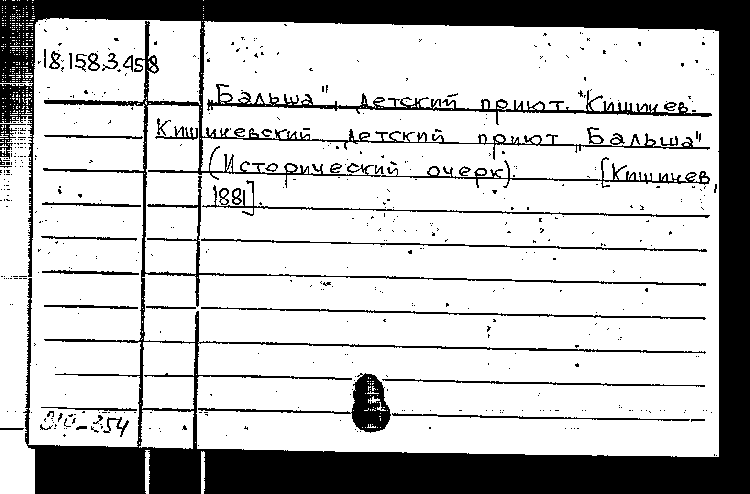 18.158.3.458
„Бальша", детский приют. Кишинев.
Кишиневский детский приют „Бальша"
(Исторический очерк). [Кишинев,
1881].